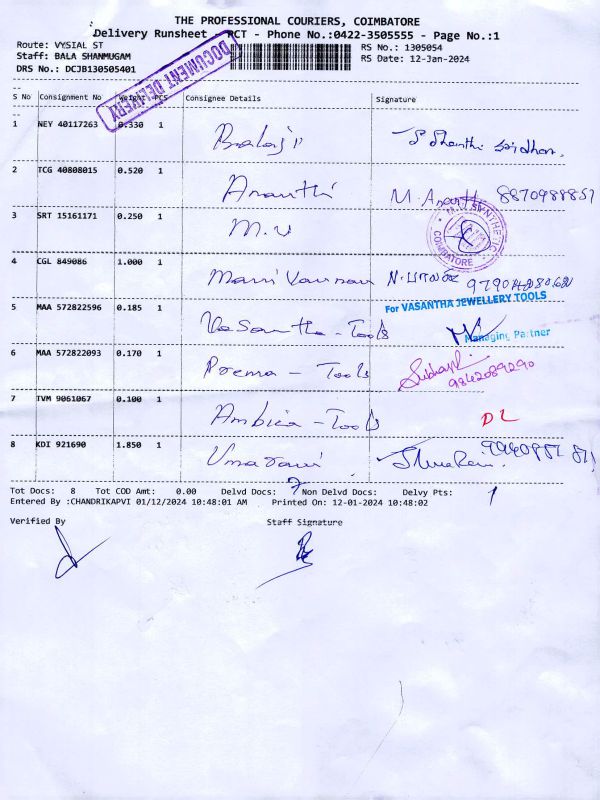 THE PROFESSIONAL COURIERS, COIMBATORE
Delivery Runsheet - PCT - Phone No.:0422-3505555 - Page No.:1
Route: VYSIAL ST RS No: 1305054
Staff: BALA SHANMUGAM RS Date: 12-Jan-2024
DRS No.: DCJB130505401
DOCUMENT DELIVERY
S No Consignment No Weight PCS Consignee Details Signature
1 NEY 40117263 0.330 1 Balaji
2 TCG 40808015 0.520 1 Ananthi M. Ananthi
3 SRT 15161171 0.250 1 M.V
M.V. SYNTHETIC COIMBATORE
4 CGL 849086 1.000 1
For VASANTHA JEWELLERY TOOLS
5 MAA 572822596 0.185 1 Vasantha - Tools
Managing Partner
6 MAA 572822093 0.170 1 Prema - Tools 9842089290
7 TVM 9061067 0.100 1 Ambica - Tools DL
8 KDI 921690 1.850 1 Umarani
Tot Docs: 8 Tot COD Amt: 0.00 Delvd Docs: 7 Non Delvd Docs: Delvy Pts: 1
Entered By :CHANDRIKAPVI 01/12/2024 10:48:01 AM Printed On: 12-01-2024 10:48:02
Verified By Staff Signature